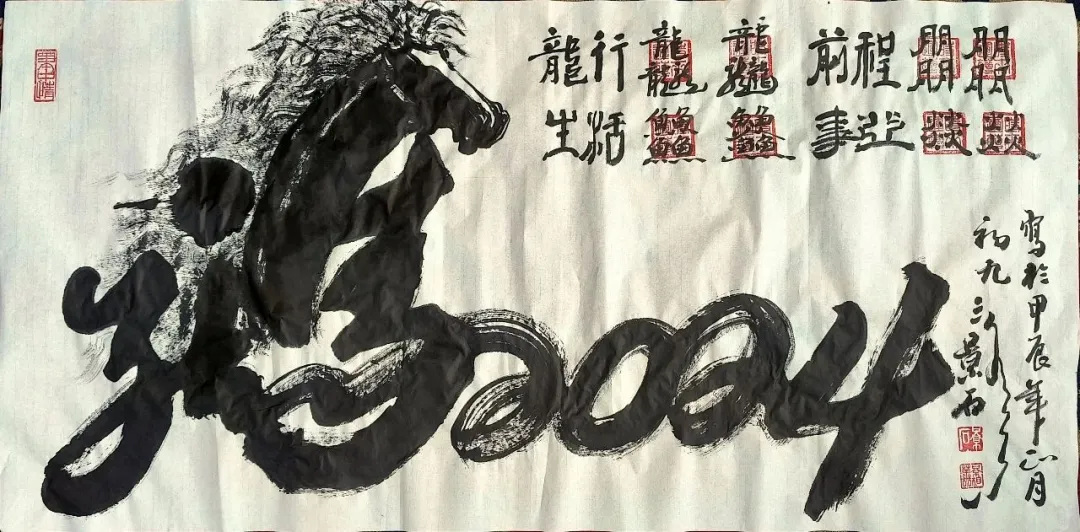 龍行龘龘 前程朤朤
生活䲜䲜 事业燚燚
2024
寫於甲辰年正月
初九 景石